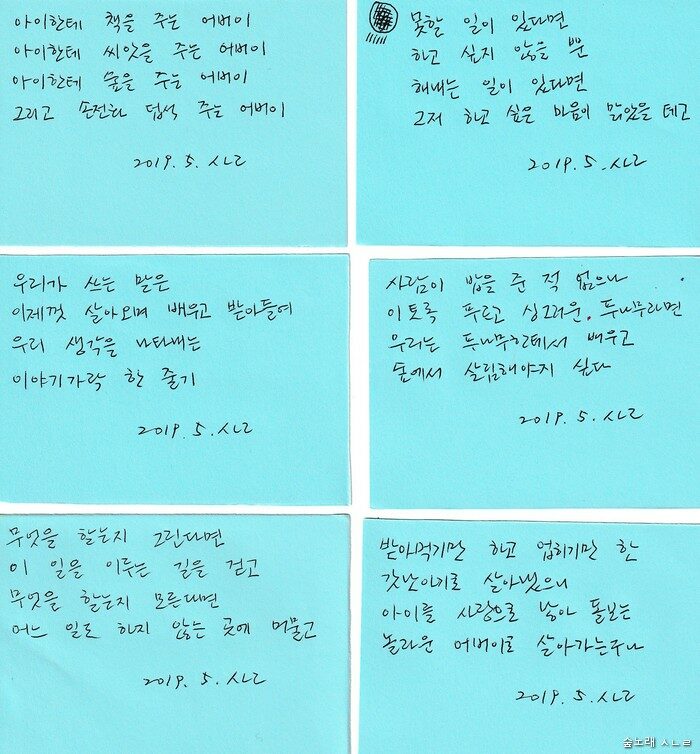 아이한테 책을 주는 어버이
아이한테 씨앗을 주는 어버이
아이한테 숲을 주는 어버이
그리고 손전화 덥석 주는 어버이
2019. 5. ㅅㄴㄹ
못할 일이 있다면
하고 싶지 않을 뿐
해내는 일이 있다면
그저 하고 싶은 마음이 맑았을 테고
2019. 5. ㅅㄴㄹ
우리가 쓰는 말은
이제껏 살아오며 배우고 받아들여
우리 생각을 나타내는
이야기가락 한 줄기
2019. 5. ㅅㄴㄹ
사람이 밥을 준 적 없으나
이토록 푸르고 싱그러운 푸나무라면
우리는 푸나무한테서 배우고
숲에서 살림해야지 싶다
2019. 5. ㅅㄴㄹ
무엇을 할는지 그린다면
이 일을 이루는 길을 걷고
무엇을 할는지 모른다면
어느 일도 하지 않는 곳에 머물고
2019. 5. ㅅㄴㄹ
받아먹기만 하고 업히기만 한
갓난아기로 살아냈으니
아이를 사랑으로 낳아 돌보는
놀라운 어버이로 살아가는구나
2019. 5. ㅅㄴㄹ
숲노래 ㅅㄴㄹ